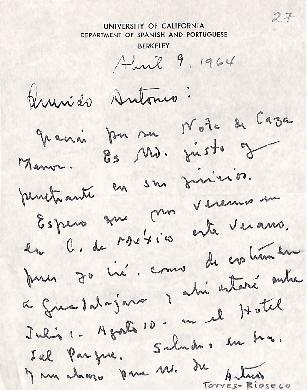 27
UNIVERSITY OF CALIFORNIA
DEPARTMENT OF SPANISH AND PORTUGUESE
BERKELEY
Abril 9, 1964
Querido Antonio:
Gracias por su Nota de Caza
Menor. Es Ud. justo y
penetrante en sus juicios.
Espero que nos veremos en
en C. de México este verano,
pues yo iré, como de costumbre
a Guadalajara y ahí estaré entre
Julio 1 - Agosto 10 - en el Hotel
del Parque. Saludos en su
y un abrazo para Ud. de Arturo
TORRES-RIOSECO